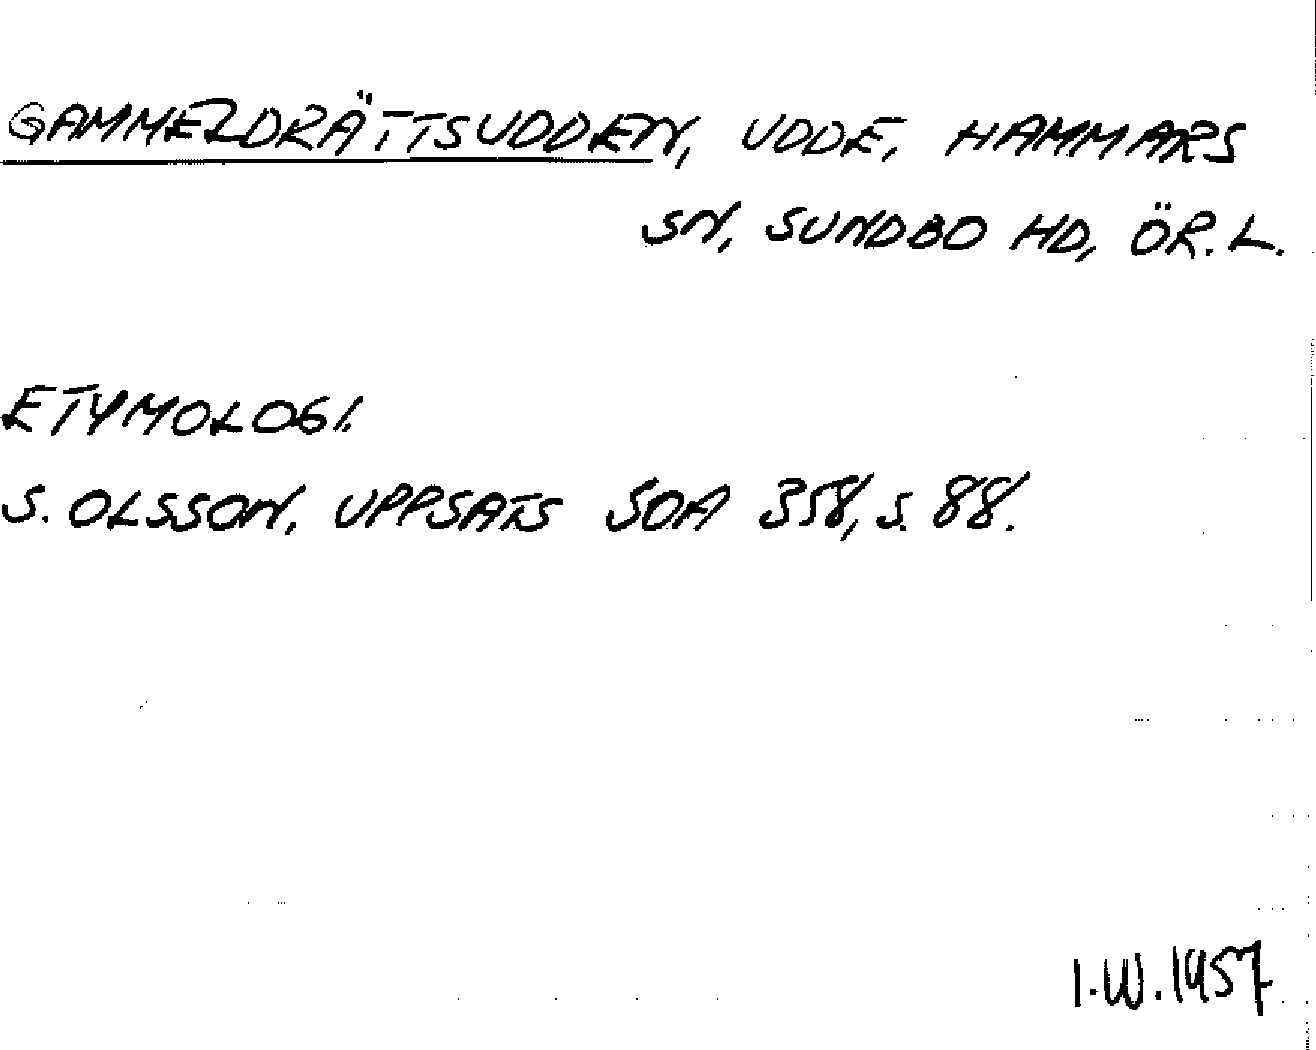 GAMMELDRÄTTSUDDEN, UDDE, HAMMARS
SN, SUNDBO HD, ÖR. L.
ETYMOLOGI.
S. OLSSON, UPPSATS SOA 358, S. 88.
I.W. 1957